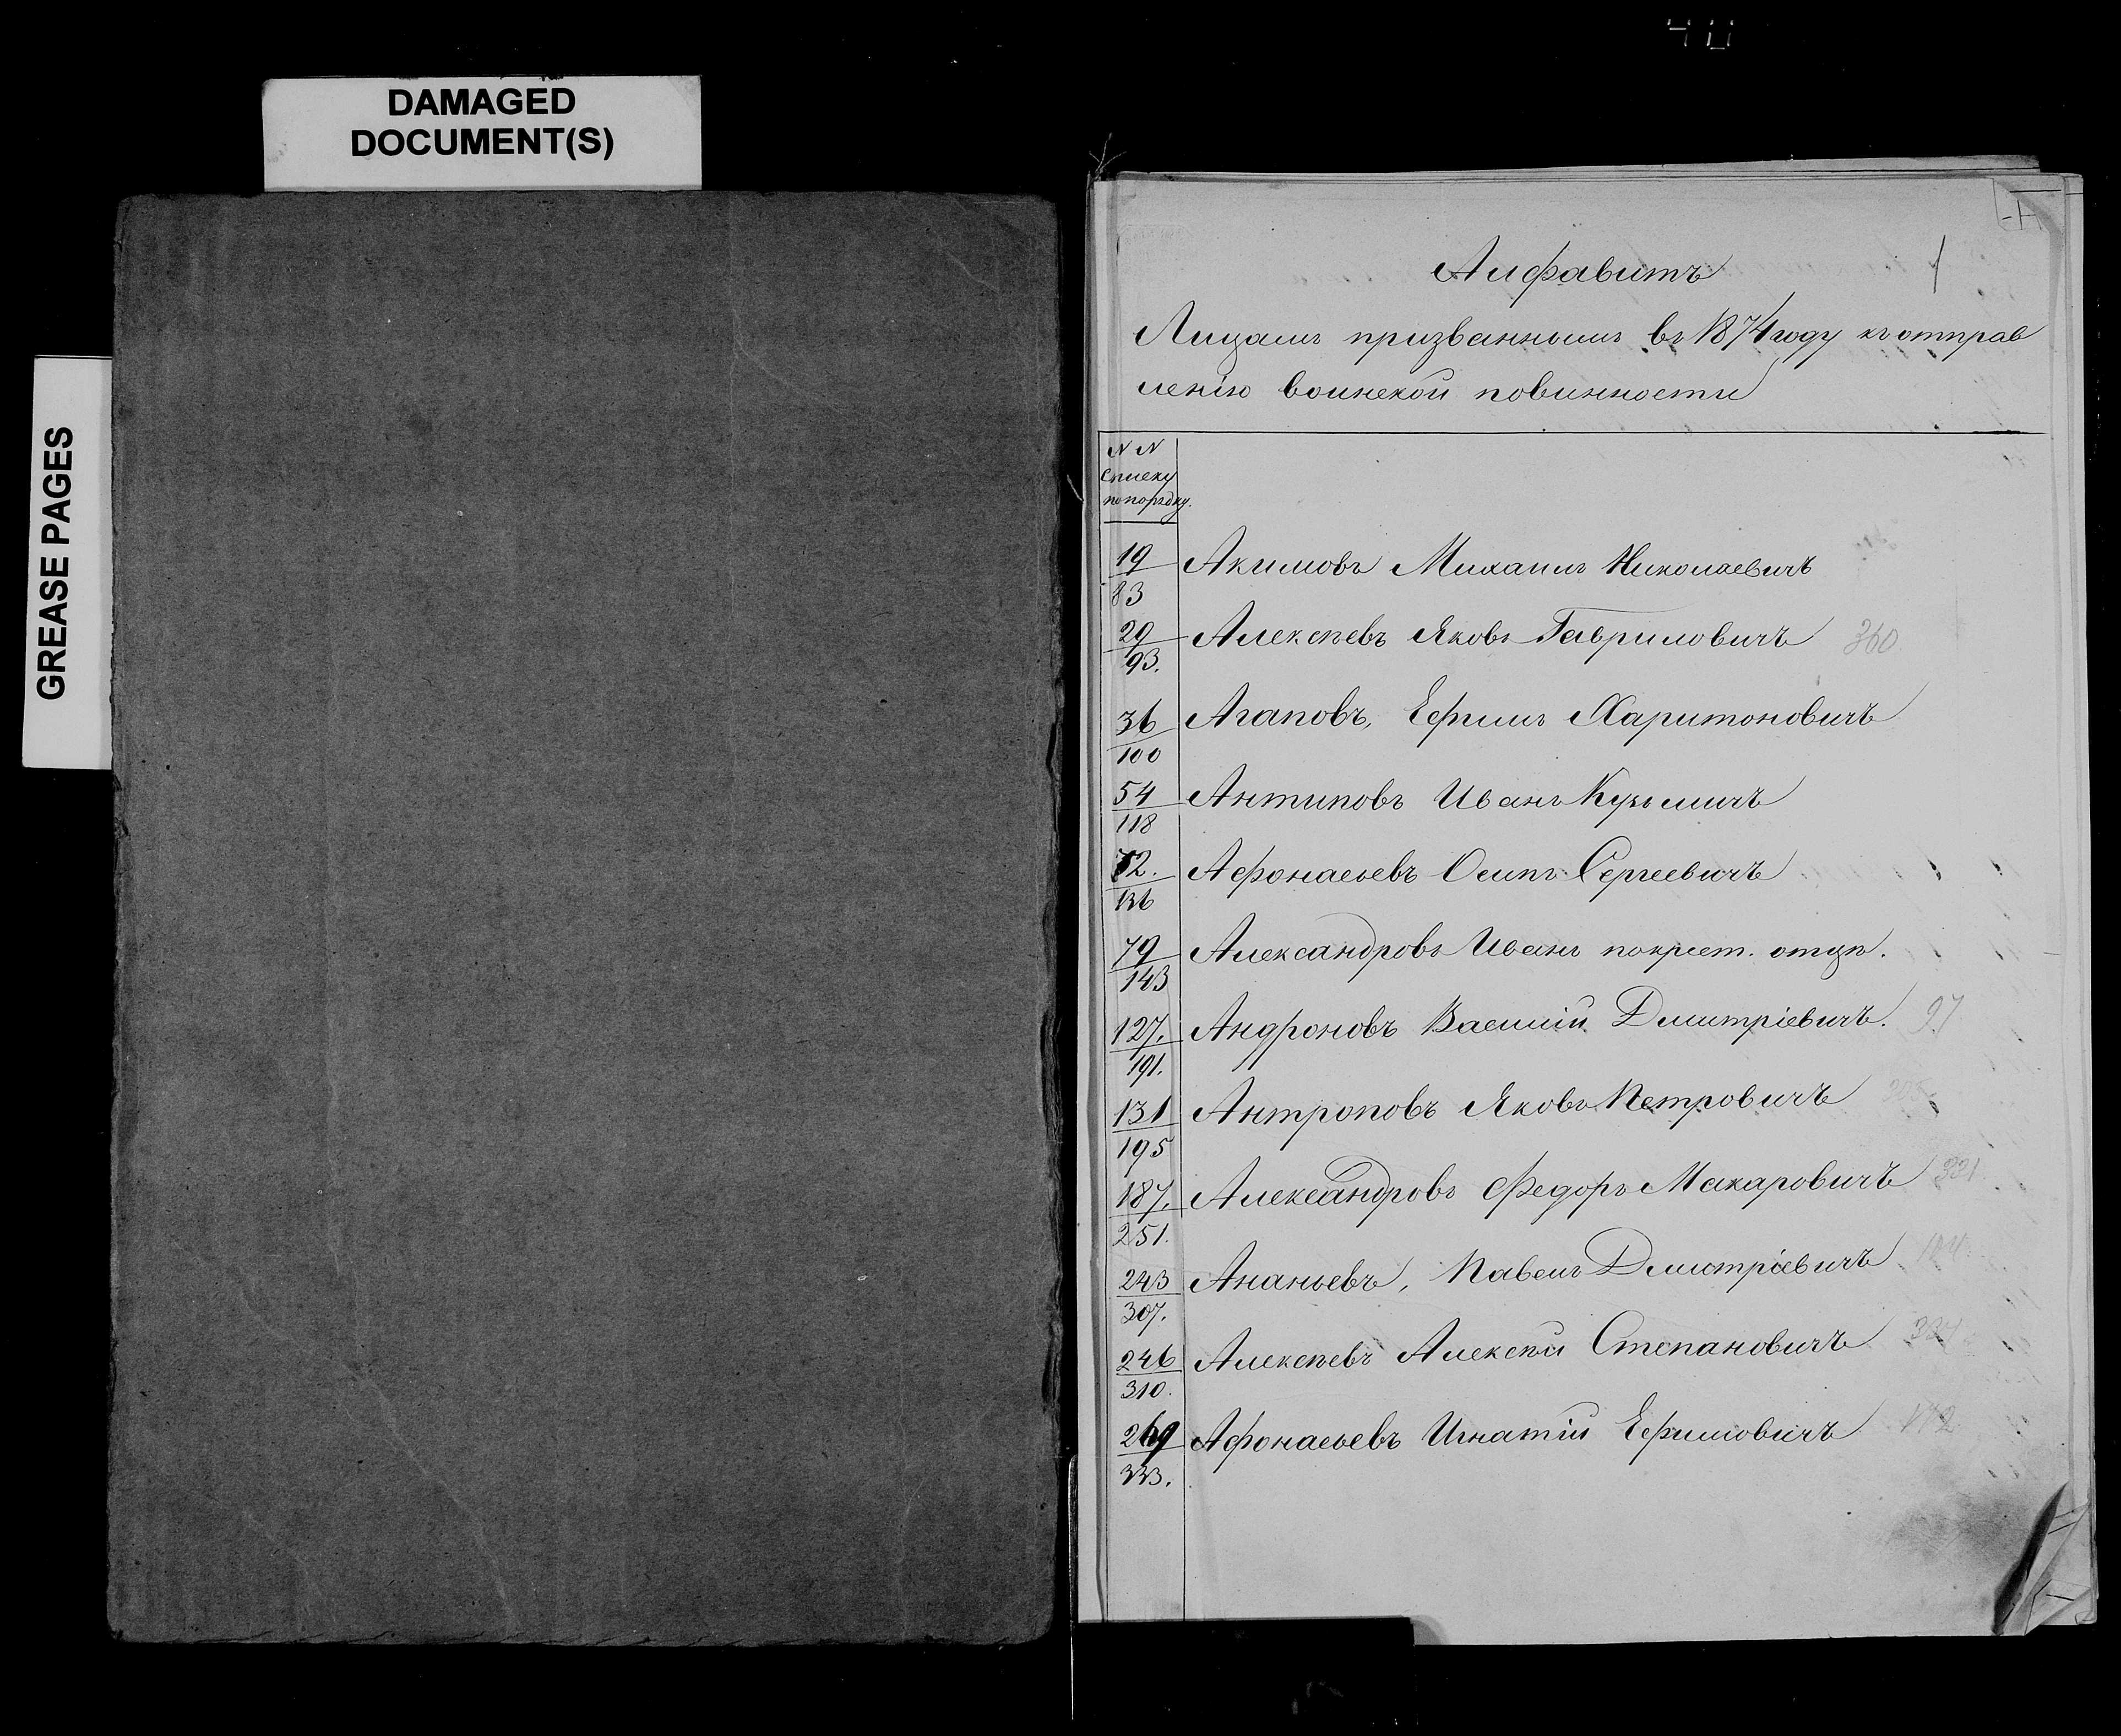 DAMAGED
DOCUMENT(S)
GREASE PAGES
Алфавитъ
1
Лицамъ призваннымъ въ 1874 году къ отправ
ленію воинской повинности
N N
списку
по порядку.
19 Акимовъ Михаилъ Николаевичъ
83
29 Алексѣевъ Яковъ Гавриловичъ 360
93.
36 Агаповъ, Ефимъ Харитоновичъ
100
54 Антиповъ Иванъ Кузьмичъ
118
72. Афонасьевъ Осипъ Сергеевичъ
136
79 Александровъ Иванъ по крест. отцѣ.
143
127. Андроновъ Василій Дмитріевичъ. 97
191.
131 Антроповъ Яковъ Петровичъ
195
187. Александровъ Федоръ Макаровичъ 321
251.
243 Ананьевъ, Павелъ Дмитріевичъ
307.
246 Алексѣевъ Алексѣй Степановичъ
310.
269 Афонасьевъ Игнатій Ефимовичъ
333.